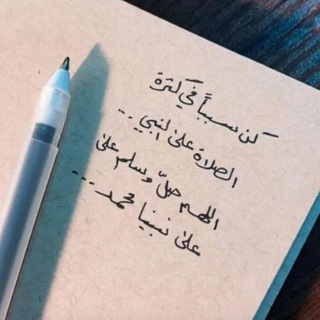 كن سبباً في كثرة
الصلاة على النبي ..
اللهم صلّ وسلم على
على نبينا محمد ...